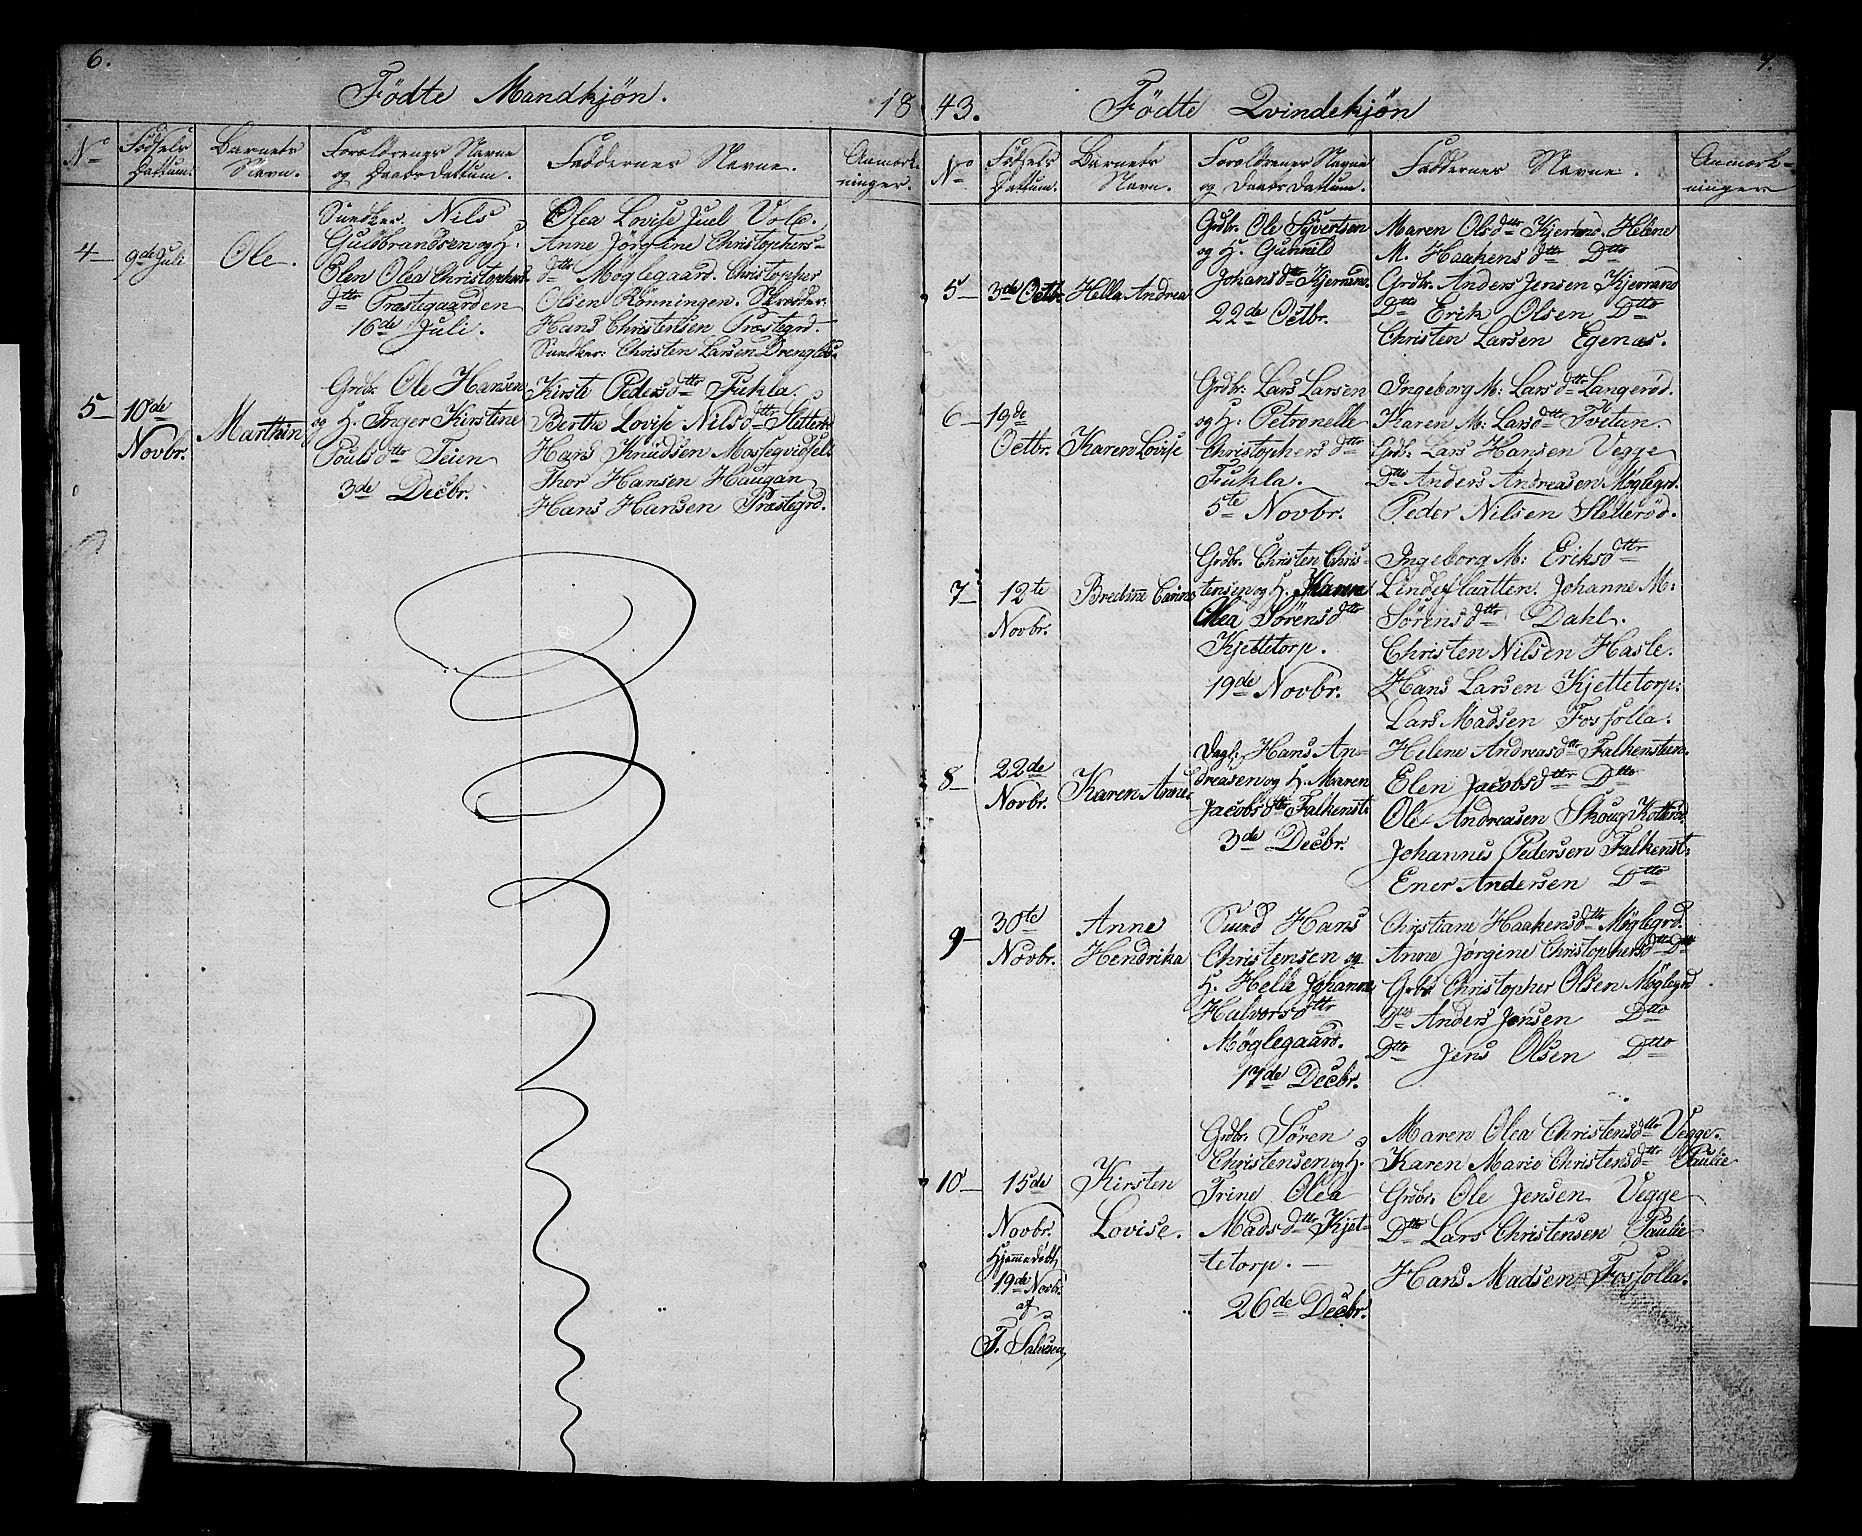 6.
Födte Mandkjön.
18
No
Födsels Dattum.
Barnets Navn.
Forældrenes Navne og Daabs Dattum.
Faddernes Navne.
Anmærkninger.
4 –
9de Juli
Ole.
Nils
Guldbrandsen og H.
Elen Olea Christophers
dtr Præstegaarden
16de Juli.
Olea Lovise Juel Vold.
Anne Jörgine Christophers-
dtr Möglegaard. Christopher
Olsen Rönningen.
Hans Christensen Præstegrd.
Christen Larsen
5 –
10de
Novbr.
Marthin
Grdbr. Ole Hansen
og H. Inger Kirstine
Poulsdtr Teien
3de Decbr.
Kirste Pedersdtr Fuhla.
Berthe Lovise Nilsdtr
Hans Knudsen
Thor Hansen Haugan
Hans Hansen Præstegrd.
7.
43.
Födte Qvindekjön
No
Födsels Dattum.
Barnets Navn.
Forældrenes Navne og Daabs Dattum.
Faddernes Navne.
Anmærkninger
5 –
3de Octbr.
Hella Andrea
Grdbr. Ole Syvertsen
og H. Gunnild
Johansdtr Kjerrand.
22de Octbr.
Maren Olsdtr Kjerrand. Helene
M. Haakensdtr Dto
Grdbr. Anders Jensen Kjerrand
Dto Erik Olsen Dto
Christen Larsen Egenæs.
6 –
19de
Octbr.
Karen Lovise
Grdbr. Lars Larsen
og H. Petronelle
Christophersdtr
Fuhla.
5te Novbr.
Ingeborg M: Larsdtr Langeröd.
Karen M: Larsdtr Tvetan.
Grdbr. Lars Hansen Vegge
Dto Anders Andreasen Möglegrd.
Peder Nilsen Sletteröd.
7 –
12te
Novbr.
Grdbr. Christen Chris-
tensen og H. Karen
Olea Sörensdtr
Kjettetorp.
19de Novbr.
Ingeborg M: Eriksdtr
Lindeflaatten. Johanne M:
Sörensdtr Dahl.
Christen Nilsen Hasle.
Hans Larsen Kjettetorp:
Lars Madsen Fossolla.
8 –
22de
Novbr.
Karen Anne.
Dagl: Hans An-
dreasen og H. Maren
Jacobsdtr Falkenst:
3de Decbr.
Helene Andreasdtr Falkensten.
Elen Jacobsdtr Dto
Ole Andreasen Skoug
Johannes Pedersen Falkenst:
Ener Andersen Dto
9 –
30te
Novbr.
Anne
Hendrika
Hans
Christensen og
H. Helle Johanne
Halvorsdtr
Möglegaard.
17de Decbr.
Christiane Haakensdtr Möglegrd.
Anne Jörgine Christophersdtr Dto
Grdbr Christopher Olsen Möglegrd
Dto Anders Jensen Dto
Dto Jens Olsen Dto
10 –
15de
Novbr.
Hjemmedöbt
19de Novbr.
af
Kirsten
Lovise.
Grdbr. Sören
Christensen og H.
Trine Olea
Madsdtr Kjet-
tetorp. –
26de Decbr.
Maren Olea Christensdtr Vegge.
Karen Marie Christensdtr Paulie
Grdbr. Ole Jensen Vegge
Dto Lars Christensen Paulie
Hans Madsen Fossolla.